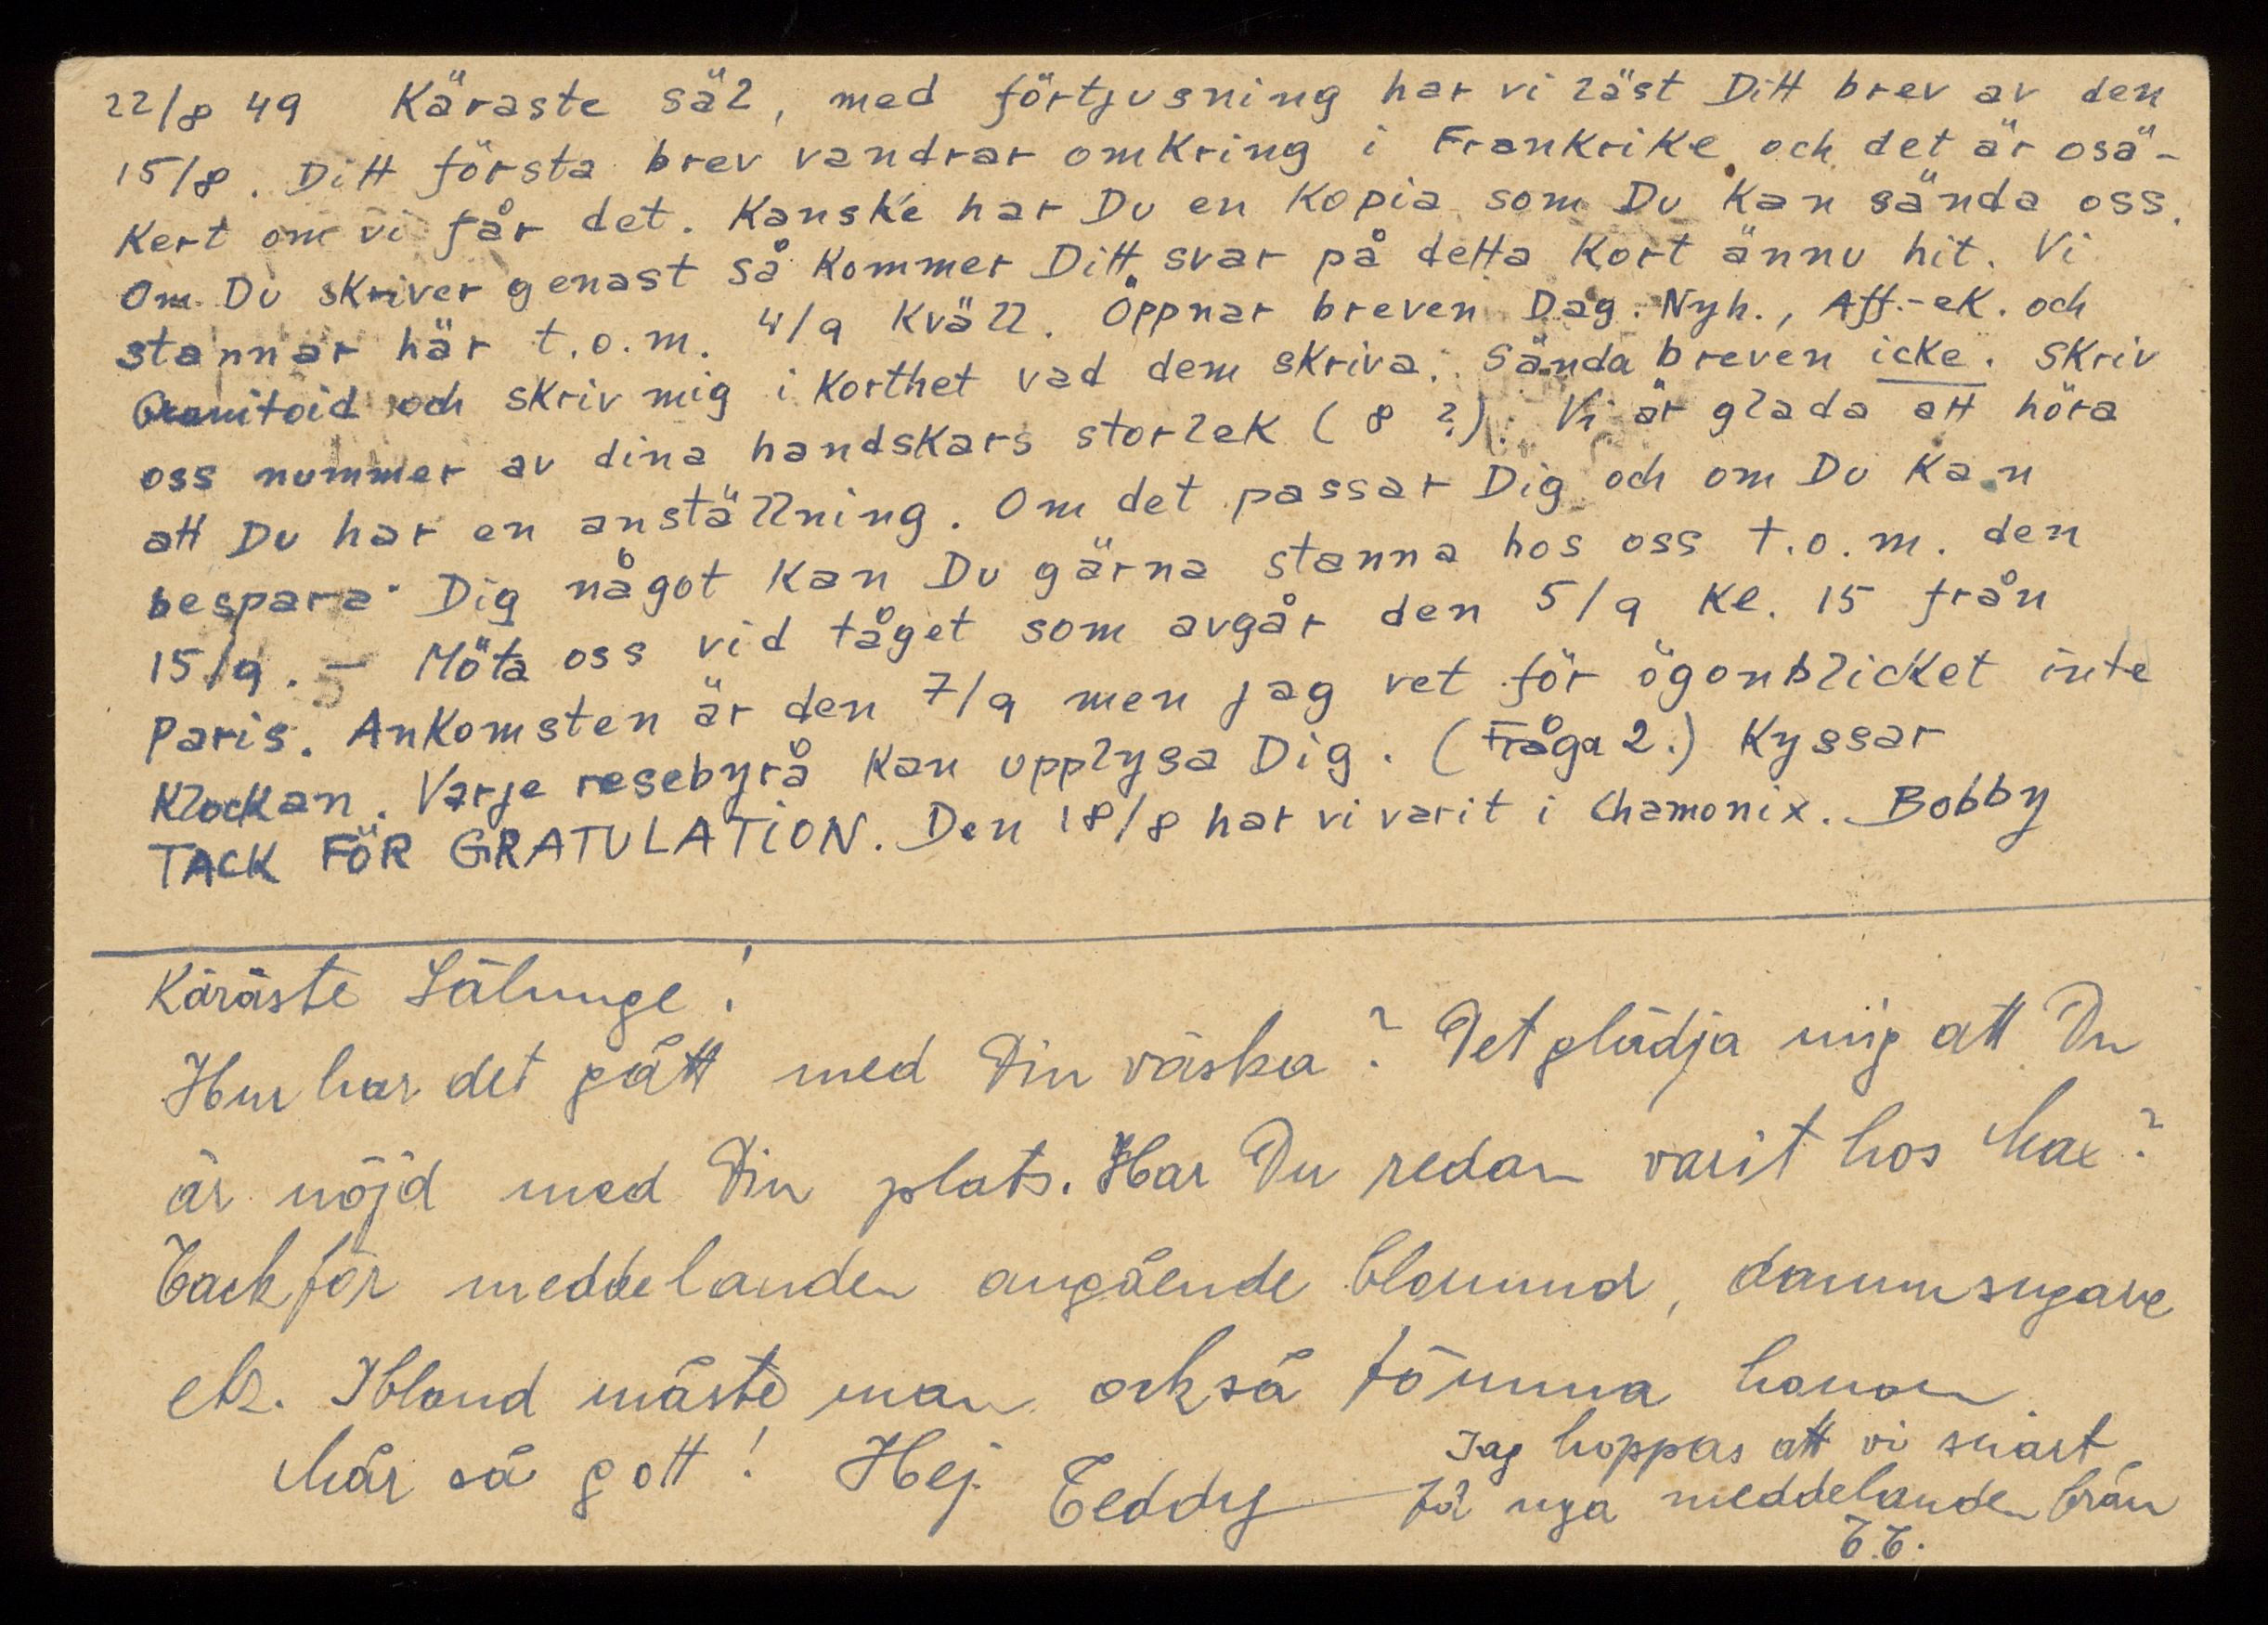 22/8 49 Käraste säl, med förtjusning har vi läst Ditt brev av den
15/8. Ditt första brev vandrar omkring i Frankrike och det är osä-
kert om vi får det. Kanske har Du en Kopia som Du kan sända oss.
Om Du skriver genast så kommer Ditt svar på detta Kort ännu hit. Vi
stannar här t.o.m. 4/9 kväll. Öppnar breven Dag. Nyh., Aff.-ek. och
Granitoid och skriv mig i korthet vad dem skriva. Sända breven icke. Skriv
oss nummer av dina handskars storlek (8 ?). Vi är glada att höra
att Du har en anställning. Om det passar Dig och om Du kan
bespara Dig något kan Du gärna stanna hos oss t.o.m. den
15/9. – Möta oss vid tåget som avgår den 5/9 kl. 15 från
Paris. Ankomsten är den 7/9 men jag vet för ögonblicket inte
klockan. Varje resebyrå kan upplysa Dig. (Fråga 2.) Kyssar
TACK FÖR GRATULATION. Den 18/8 har vi varit i Chamonix. Bobby
Käräste Sälunge!
Hur har det gått med Din väska? Det glädja mig att Du
är nöjd med Din plats. Har Du redan varit hos Max?
Tack för meddelanden angående blommor, dammsugare
etz. Ibland måste man också tömma honom.
Mår så gott! Hej. Teddy
Jag hoppas att vi snart
få nya meddelanden från
T.T.